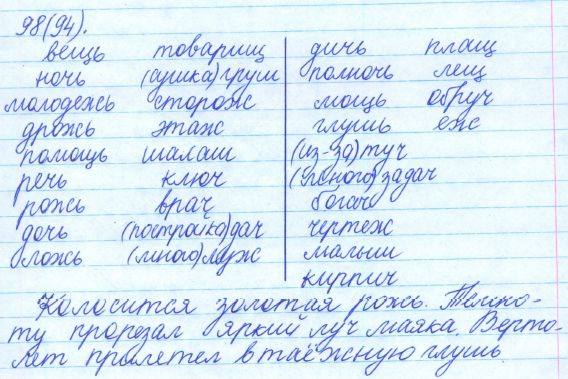 98(94).
вещь товарищ дичь плащ
ночь (сушка)груш полночь лещ
молодежь сторож мощь обруч
дрожь этаж глушь ёж
помощь шалаш (из-за)туч
речь ключ (много)задач
рожь врач богач
дочь (постройка)дач чертеж
ложь (много)луж малыш
кирпич
Колосится золотая рожь. Темно-
ту прорезал яркий луч маяка. Верто-
лет пролетел в таёжную глушь